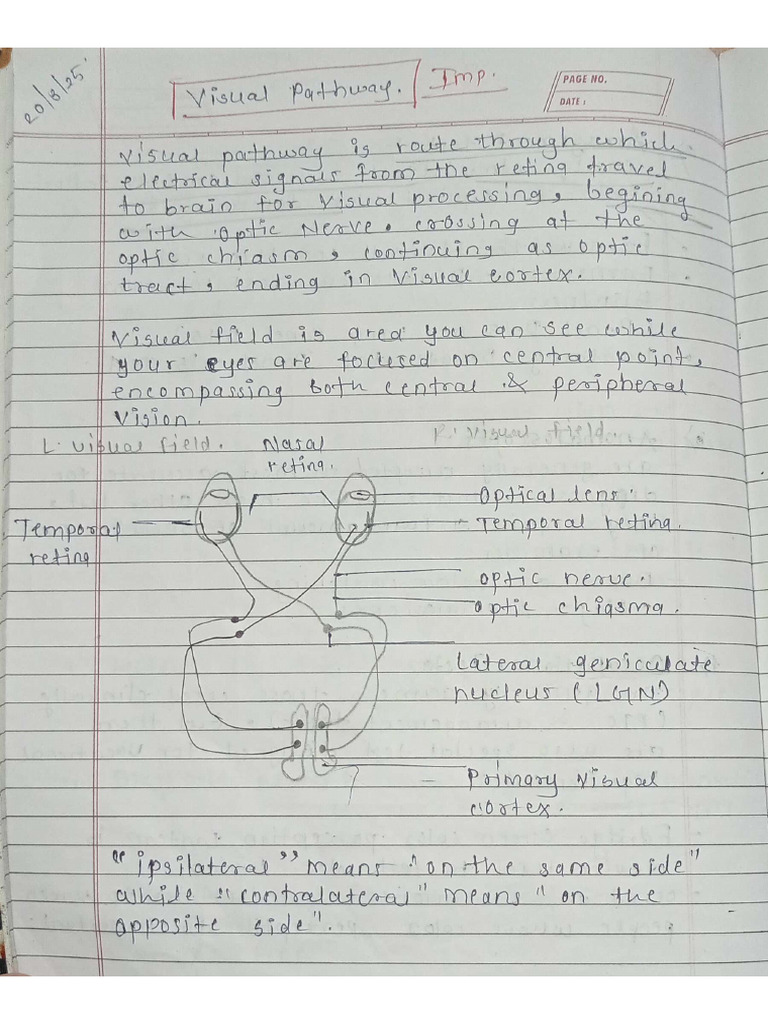 20/8/25
Visual Pathway. Imp.
PAGE NO.
DATE:
Visual pathway is route through which
electrical signals from the retina travel
to brain for visual processing, begining
with optic Nerve. crossing at the
optic chiasm, continuing as optic
tract, ending in visual cortex.
Visual field is area you can see while
your eyes are focused on central point,
encompassing both central & peripheral
vision.
L. visual field. Nasal R. Visual field.
retina.
Optical lens.
Temporal Temporal retina.
retina
optic nerve.
optic chiasma.
Lateral geniculate
nucleus (LGN)
Primary visual
cortex.
"ipsilateral" means "on the same side"
while "contralateral" means "on the
opposite side".